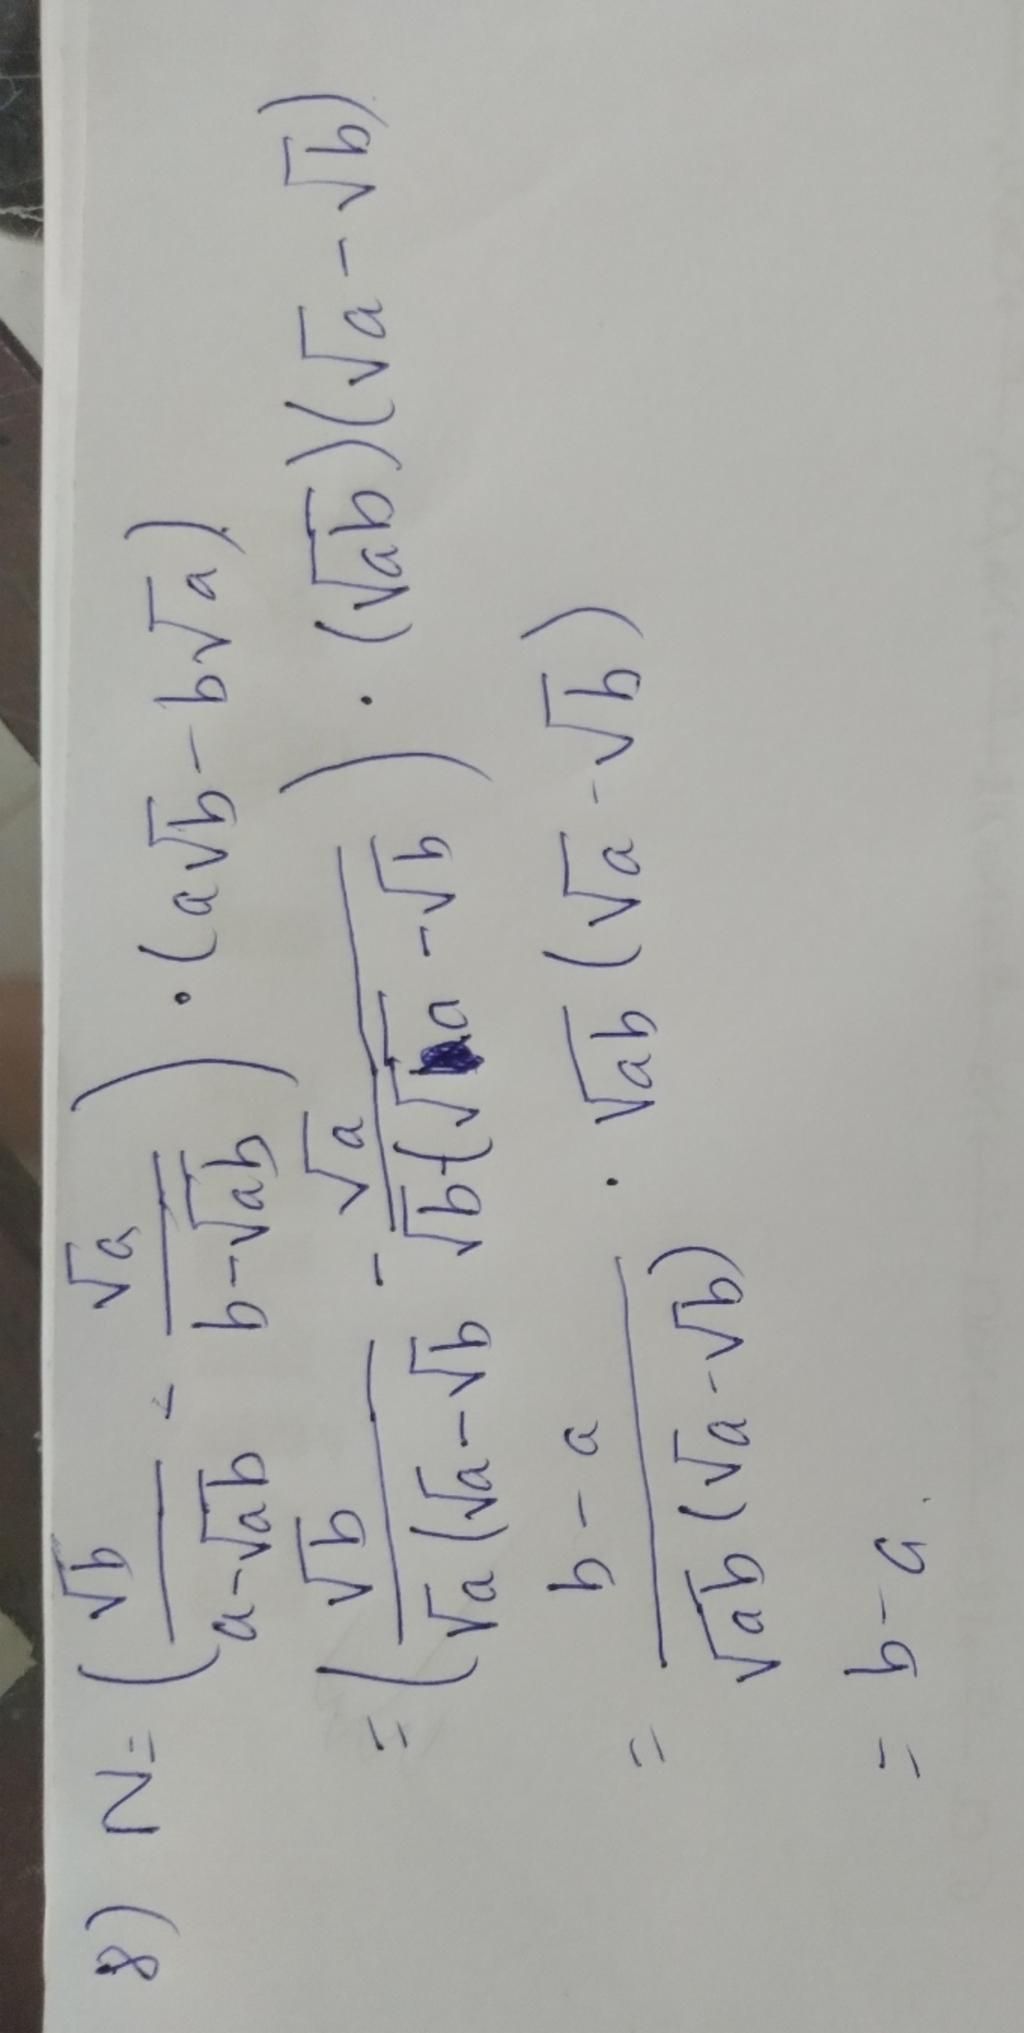 8) N = (√b / a-√ab - √a / b-√ab) · (a√b - b√a)
= (√b / √a(√a-√b - √a / √b(√a - √b) · (√ab)(√a - √b)
= b - a / √ab(√a - √b) · √ab(√a - √b)
= b - a.